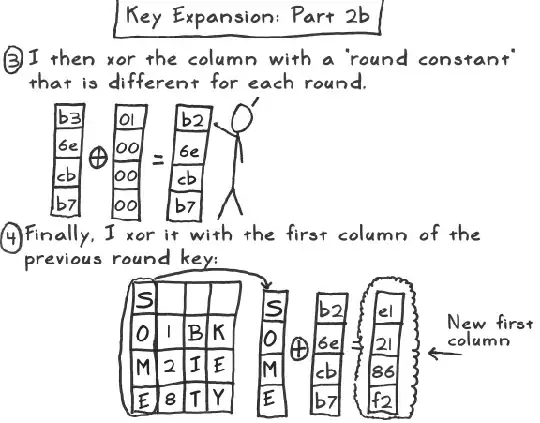 Key Expansion: Part 2b
③ I then xor the column with a "round constant"
that is different for each round.
b3 01 b2
6e 00 6e
cb ⊕ 00 = cb
b7 00 b7
④ Finally, I xor it with the first column of the
previous round key:
S S b2 e1
O 1 B K O 6e 21
M 2 I E M ⊕ cb = 86
E 8 T Y E b7 f2
New first
column